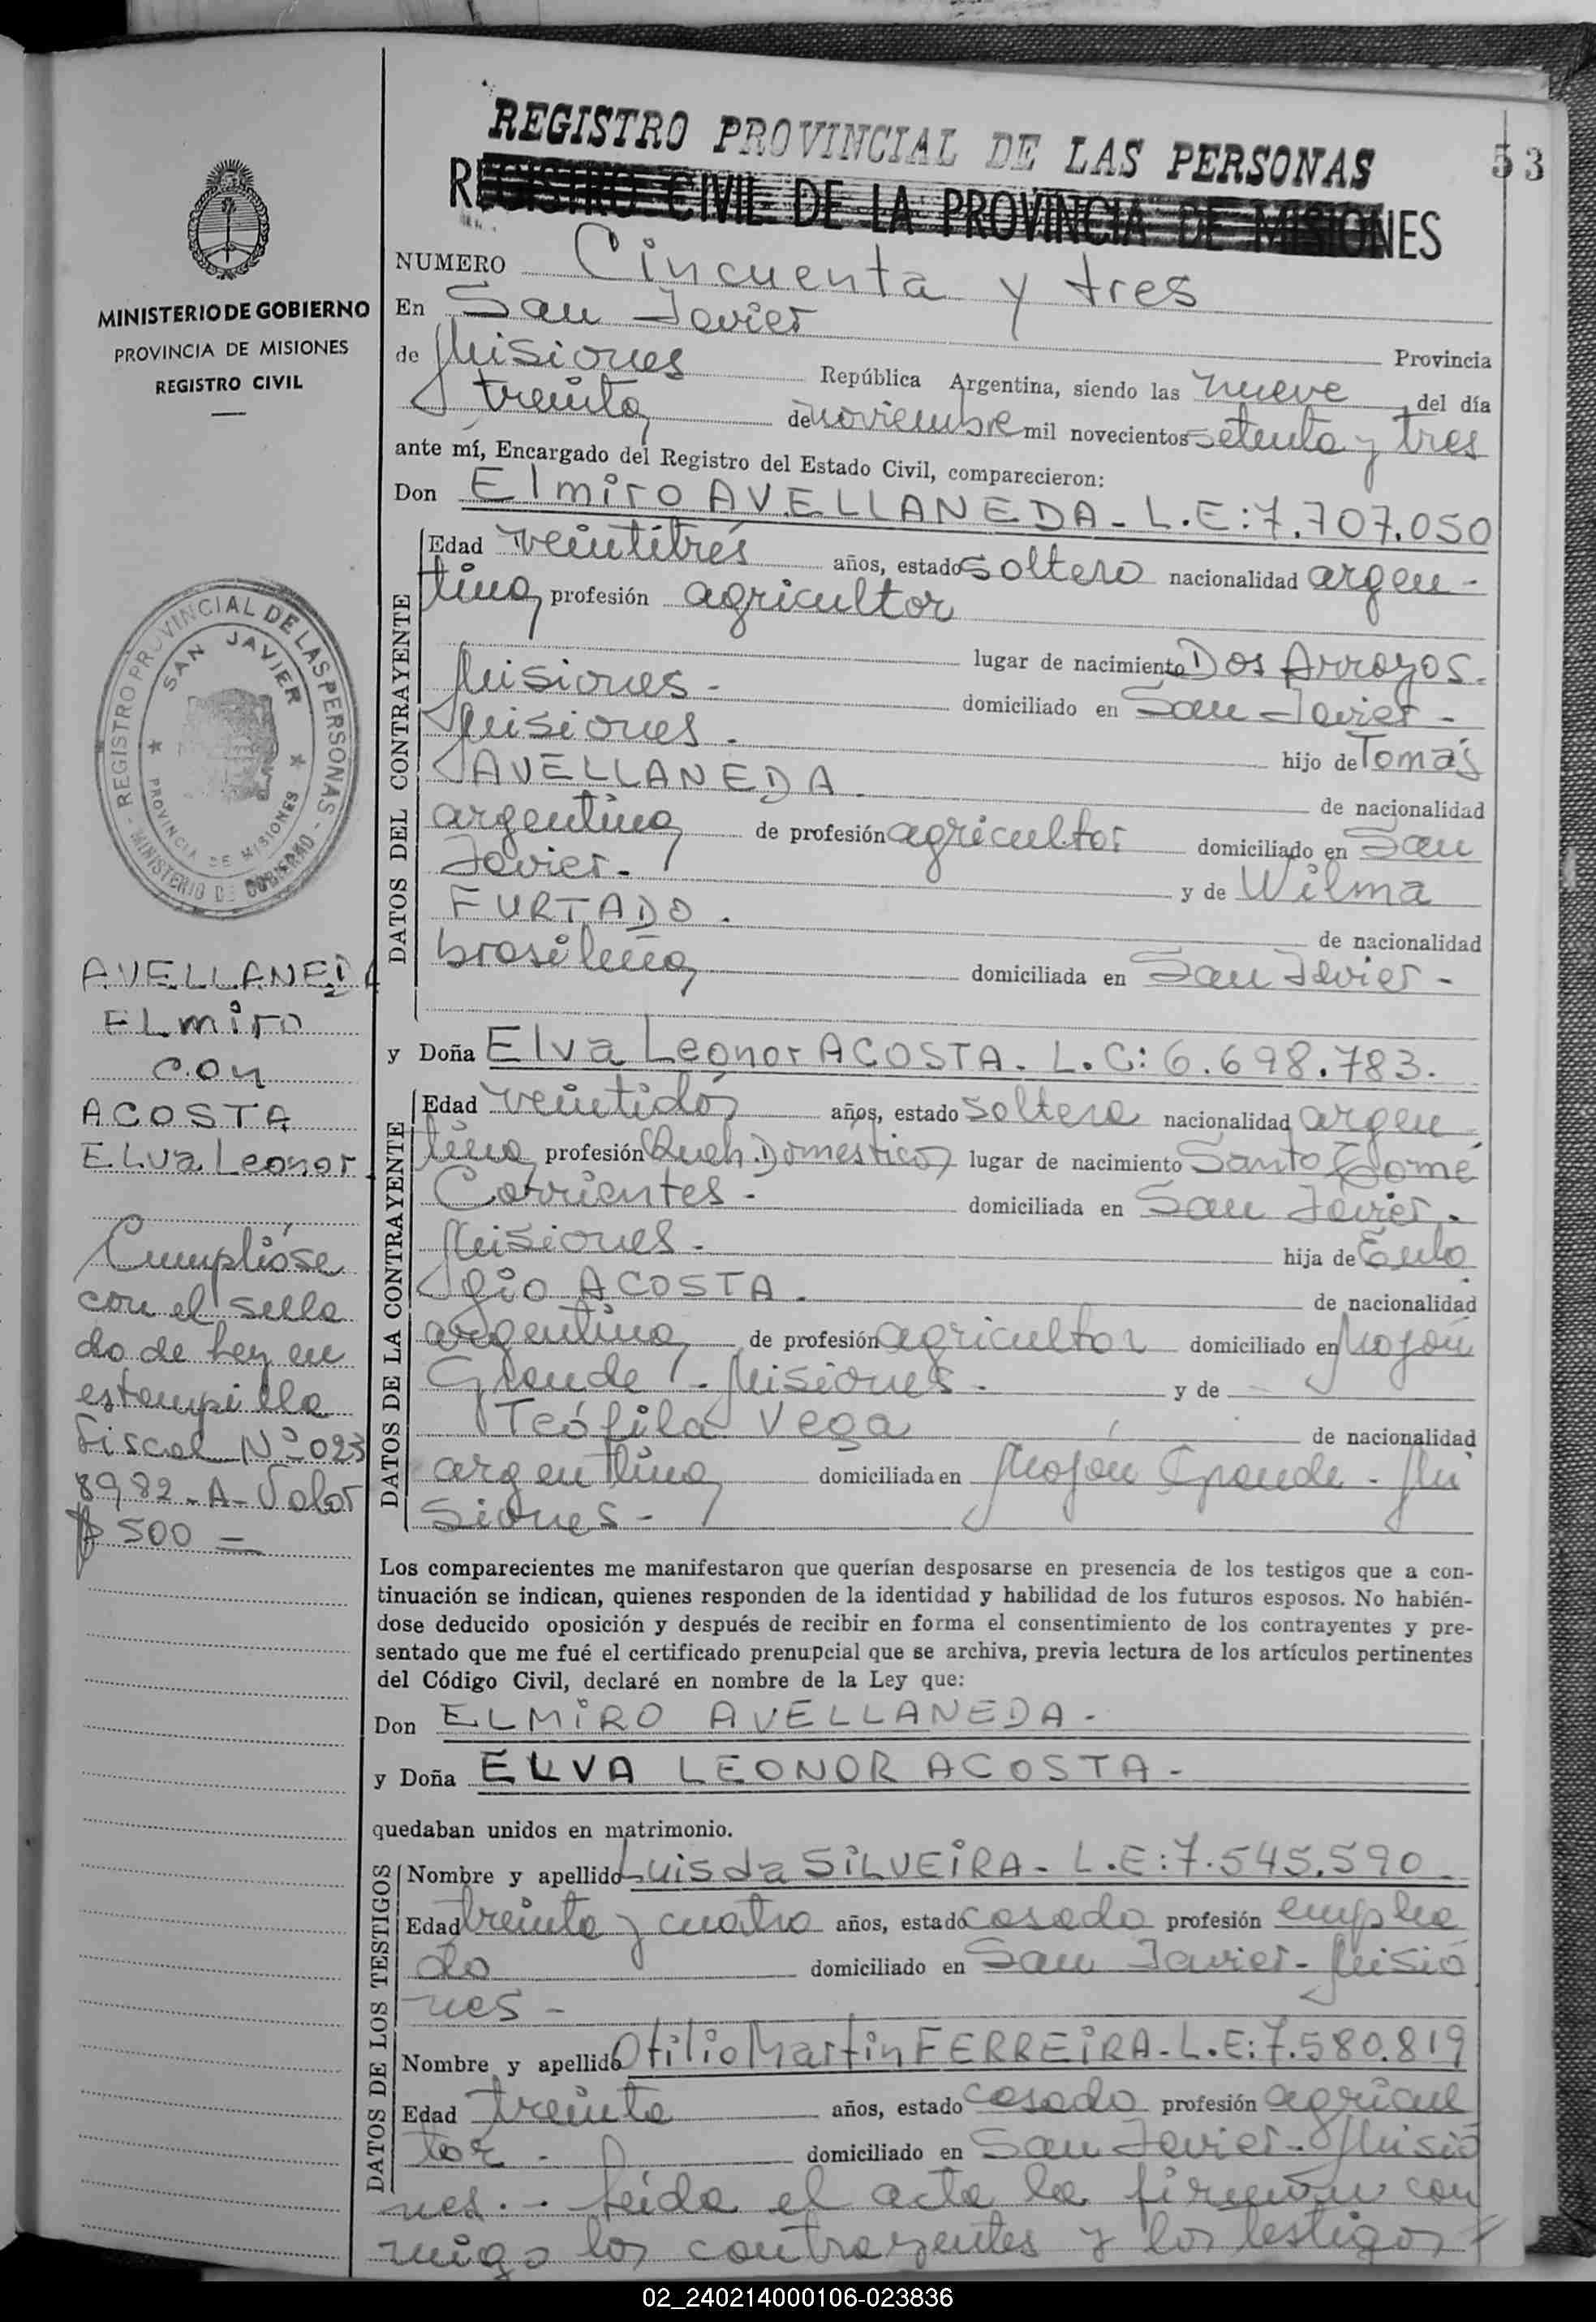 REGISTRO PROVINCIAL DE LAS PERSONAS
53
REGISTRO CIVIL DE LA PROVINCIA DE MISIONES
MINISTERIO DE GOBIERNO
PROVINCIA DE MISIONES
REGISTRO CIVIL
NUMERO Cincuenta y tres
En San Javier Provincia
de Misiones República Argentina, siendo las nueve del día
treinta de noviembre mil novecientos setenta y tres
ante mí, Encargado del Registro del Estado Civil, comparecieron:
Don Elmiro AVELLANEDA - L.E: 7.707.050
DATOS DEL CONTRAYENTE
Edad veintitrés años, estado soltero nacionalidad argen-
tina profesión agricultor
lugar de nacimiento Dos Arroyos.
Misiones - domiciliado en San Javier -
Misiones. hijo de Tomás
AVELLANEDA. de nacionalidad
argentina de profesión agricultor domiciliado en San
Javier. y de Wilma
FURTADO. de nacionalidad
brasileña domiciliada en San Javier -
REGISTRO PROVINCIAL DE LAS PERSONAS - MINISTERIO DE GOBIERNO -
SAN JAVIER
PROVINCIA DE MISIONES
AVELLANEDA
ELmiro
con
ACOSTA
ELva Leonor
y Doña Elva Leonor ACOSTA. L.C: 6.698.783.
DATOS DE LA CONTRAYENTE
Edad veintidós años, estado soltera nacionalidad argen
tina profesión Queh. Domesticos lugar de nacimiento Santo Tomé
Corrientes - domiciliada en San Javier.
Misiones - hija de Eulo
gio ACOSTA. de nacionalidad
argentina de profesión agricultor domiciliado en Mojón
Grande - Misiones - y de
Teófila Vega de nacionalidad
argentina domiciliada en Mojón Grande - Mi
siones -
Cumplióse
con el sella
do de Ley en
estampilla
Fiscal Nº 023
8982 - A - Valor
$ 500 =
Los comparecientes me manifestaron que querían desposarse en presencia de los testigos que a con-
tinuación se indican, quienes responden de la identidad y habilidad de los futuros esposos. No habién-
dose deducido oposición y después de recibir en forma el consentimiento de los contrayentes y pre-
sentado que me fué el certificado prenupcial que se archiva, previa lectura de los artículos pertinentes
del Código Civil, declaré en nombre de la Ley que:
Don ELMIRO AVELLANEDA -
y Doña ELVA LEONOR ACOSTA -
quedaban unidos en matrimonio.
DATOS DE LOS TESTIGOS
Nombre y apellido Luis da SILVEIRA - L.E: 7.545.590
Edad treinta y cuatro años, estado casado profesión emplea
do domiciliado en San Javier - Misio
nes -
Nombre y apellido Otilio Martin FERREIRA - L.E: 7.580.819
Edad treinta años, estado casado profesión agricul
tor - domiciliado en San Javier - Misio
nes. - Leida el acta la firman con
migo los contrayentes y los testigos
02_240214000106-023836